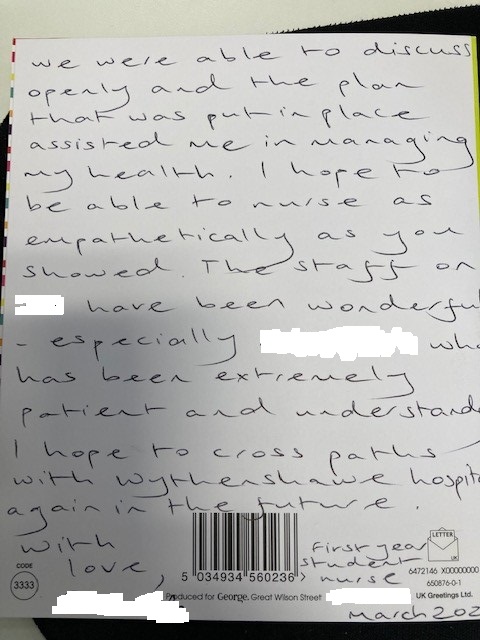 we were able to discuss
openly and the plan
that was put in place
assisted me in managing
my health. I hope to
be able to nurse as
empathetically as you
showed. The staff on
have been wonderful
- especially who
has been extremely
patient and understand
I hope to cross paths
with Wythenshawe hospita
again in the future.
With
love,
First year
student
nurse
March 202
CODE
3333
5 034934 560236 >
Produced for George, Great Wilson Street
LETTER
UK
6472146 X00000000
650876-0-1
UK Greetings Ltd.